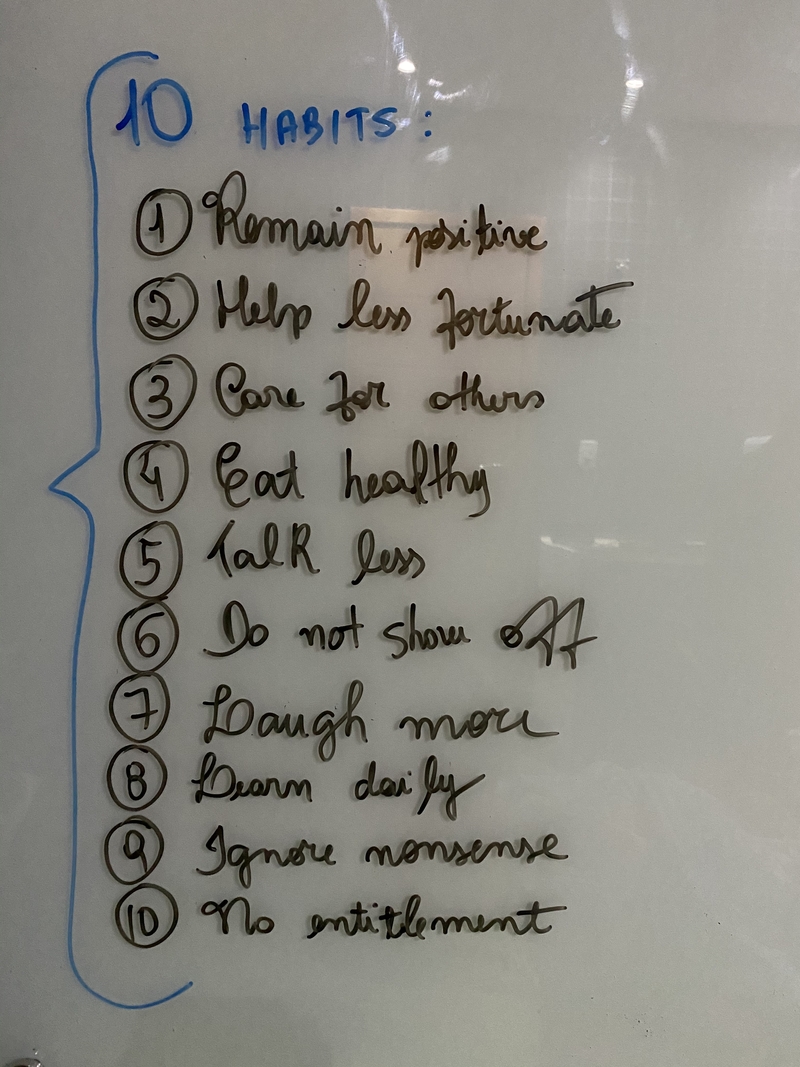 10 HABITS:
1 Remain positive
2 Help less fortunate
3 Care for others
4 Eat healthy
5 Talk less
6 Do not show off
7 Laugh more
8 Learn daily
9 Ignore nonsense
10 No entitlement